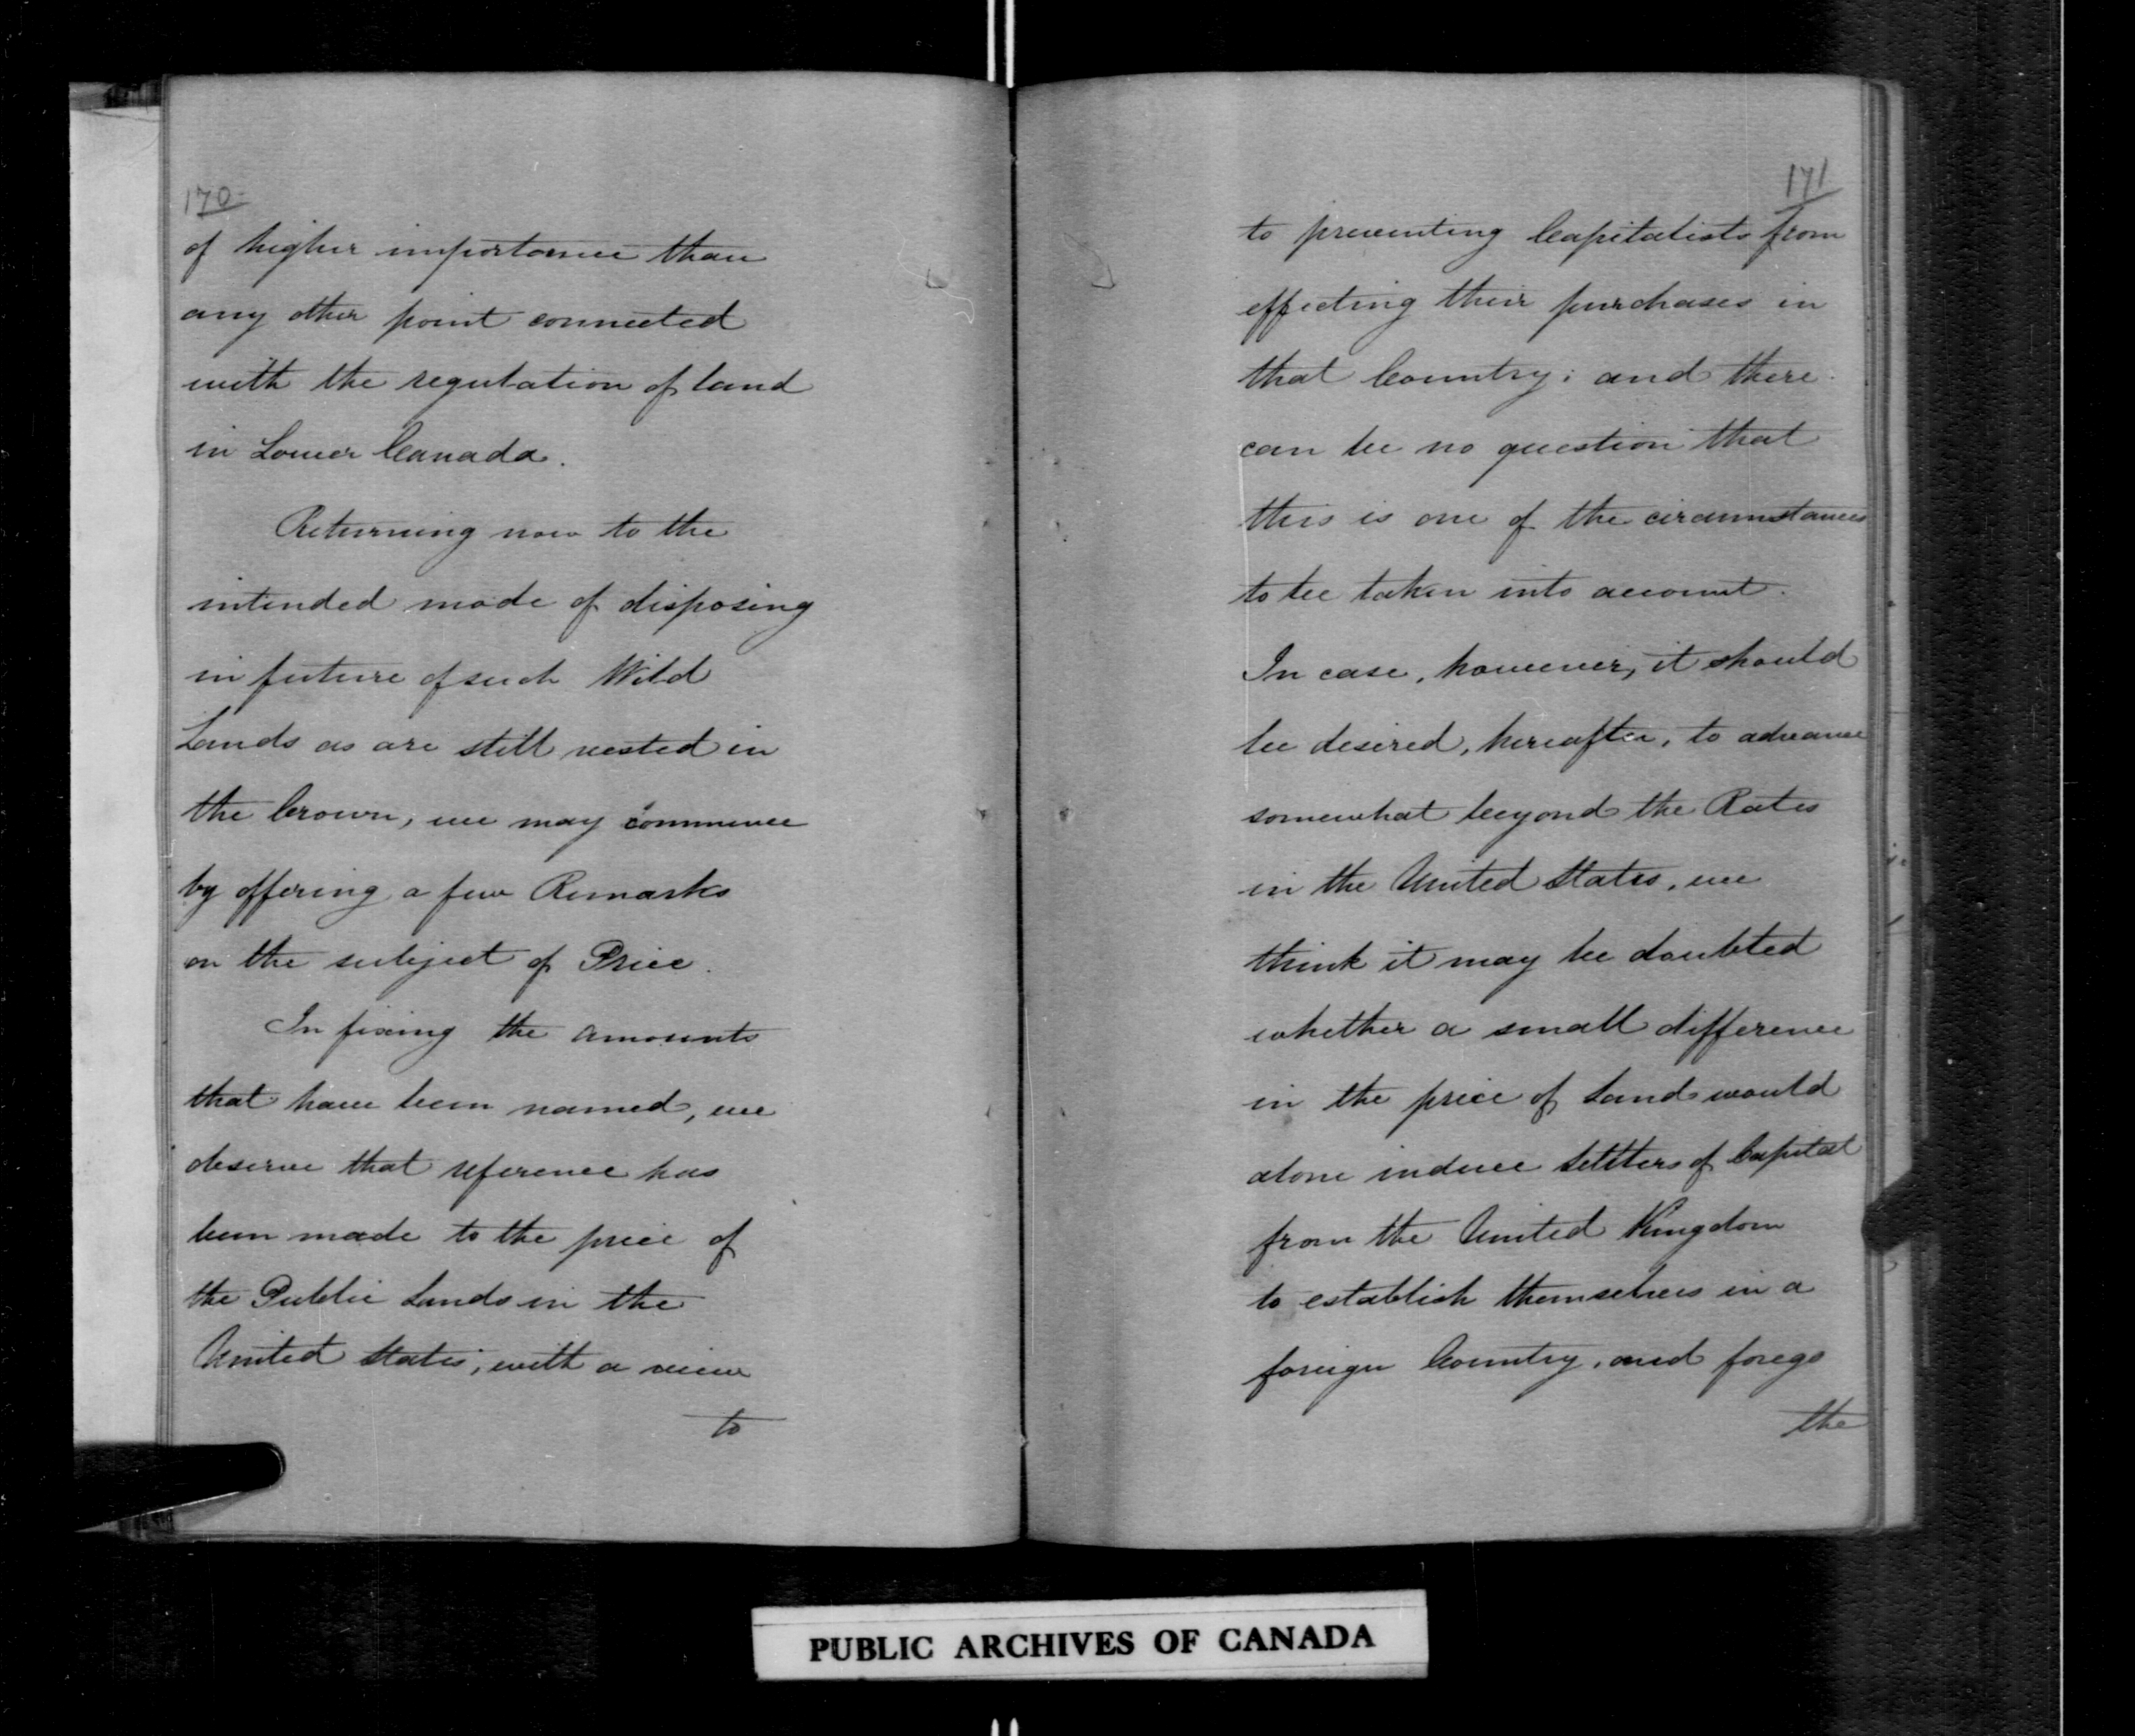 170
of higher importance than
any other point connected
with the regulation of land
in Lower Canada.
Returning now to the
intended mode of disposing
in future of such Wild
Lands as are still vested in
the Crown, we may commence
by offering a few Remarks
on the subject of Price.
In fixing the amounts
that have been named, we
observe that reference has
been made to the price of
the Public Lands in the
United States, with a view
to
171
to preventing Capitalists from
effecting their purchases in
that Country; and there
can be no question that
this is one of the circumstances
to be taken into account.
In case, however, it should
be desired, hereafter, to advance
somewhat beyond the Rates
in the United States, we
think it may be doubted
whether a small difference
in the price of Land would
alone induce Settlers of Capital
from the United Kingdom
to establish themselves in a
foreign Country, and forego
the
PUBLIC ARCHIVES OF CANADA